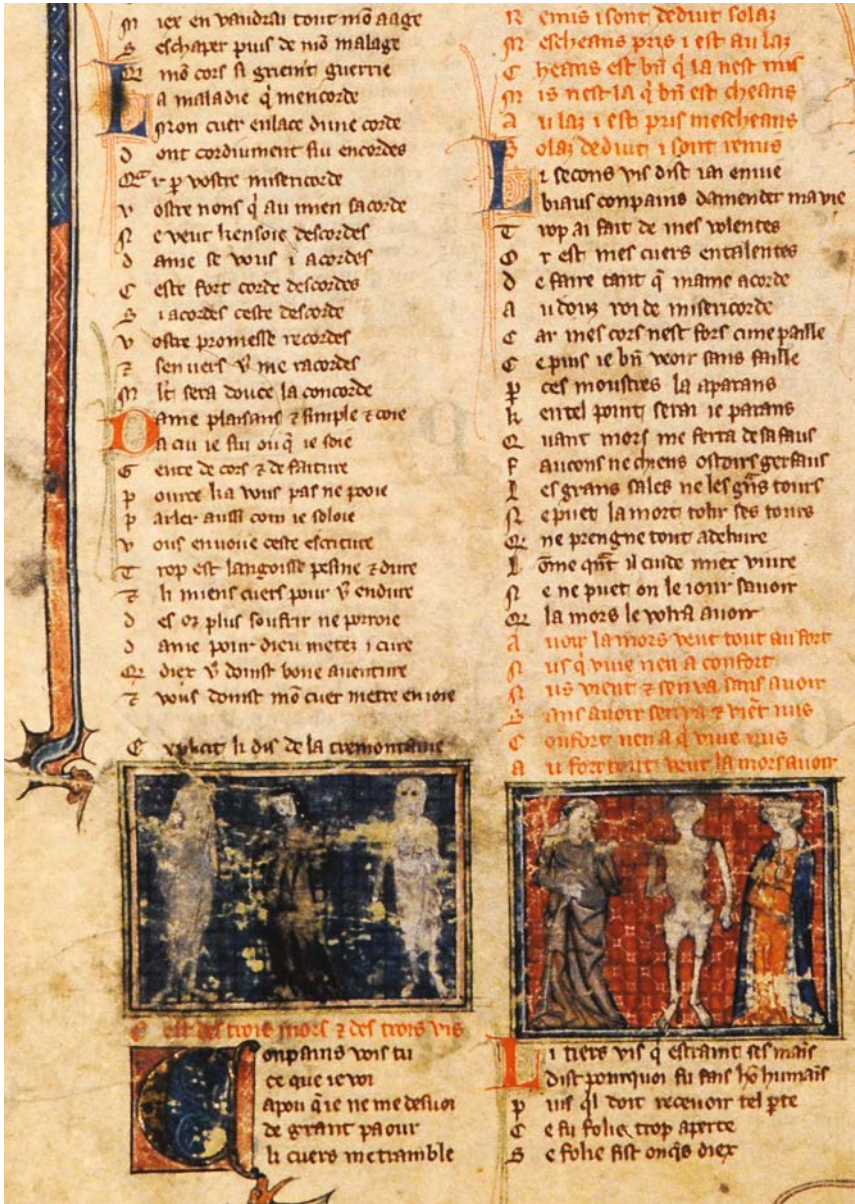 M iex en vaudrai tout mō aage
S eschaper puis de mō malage
Q̄ mō cors si grieint guerrie
L a maladie q̄ mencorde
Mon cuer enlace dune corde
D ont cordiument sui encordes
v ostre nons q̄ au mien sacorde
N e veut kensoie descordes
D ame se vous i acordes
C este fort corde descordes
S i acordes ceste descorde
v ostre promesse recordes
⁊ senuers v̄ me racordes
M lt sera douce la concorde
D ame plaisans ⁊ simple ⁊ coie
A cui ie sui ou q̄ ie soie
G ente de cors ⁊ de faiture
P ource ka vous pas ne pooie
P arler aussi com ie soloie
v ous enuoie ceste escriture
T rop est langoisse pesme ⁊ dure
⁊ li miens cuers pour v̄ endure
D es or plus soufrir ne porroie
D ame pour dieu metez i cure
Q̄ diex v̄ doinst bone auenture
⁊ vous doinst mō cuer metre en ioie
E xplicit li dis de la tremontaine
C est des trois mors ⁊ des trois vis
C onpains vois tu
ce que ie voi
apou q̄ ie ne me desuoi
de grant paour
li cuers me tramble
R emis i sont deduit solaz
M escheans pris i est au laz
C heans est bn̄ q̄ la nest mis
M is nest la q̄ bn̄ est cheans
A u laz i est pris mescheans
S olaz deduit i sont remis
L i secons vis dist iai enuie
biaus conpains damender ma vie
T rop ai fait de mes volentes
O r est mes cuers entalentes
D e faire tant q̄ mame acorde
A u douz roi de misericorde
C ar mes cors nest fors cune paille
C e puis ie bn̄ veoir sans faille
P ces moustres la aparans
K en tel point serai ie parans
Q uant mors me fera desafaus
F aucons ne chiens ostoirs gerfaus
L es grans sales ne les gn̄s tours
N e puet la mort tolir ses tours
Q̄ ne prengne tout adeliure
L ōme qn̄t il cuide miex viure
N e ne puet on le iour sauoir
Q̄ la mors le volra auoir
A uoir la mors veut tout au fort
N us q̄ viue nen a confort
N us vient ⁊ sen va sans auoir
S ans auoir sen va ⁊ viēt nus
C onfort nen a q̄ viue nus
A u fort tout veut la mors auoir
L i tiers vis q̄ estraint ses mais̄
Dist pourquoi fu fais hō humais̄
P uis ql̄ doit receuoir tel pte
C e fu folie trop aperte
S e folie fist onq̄s diex